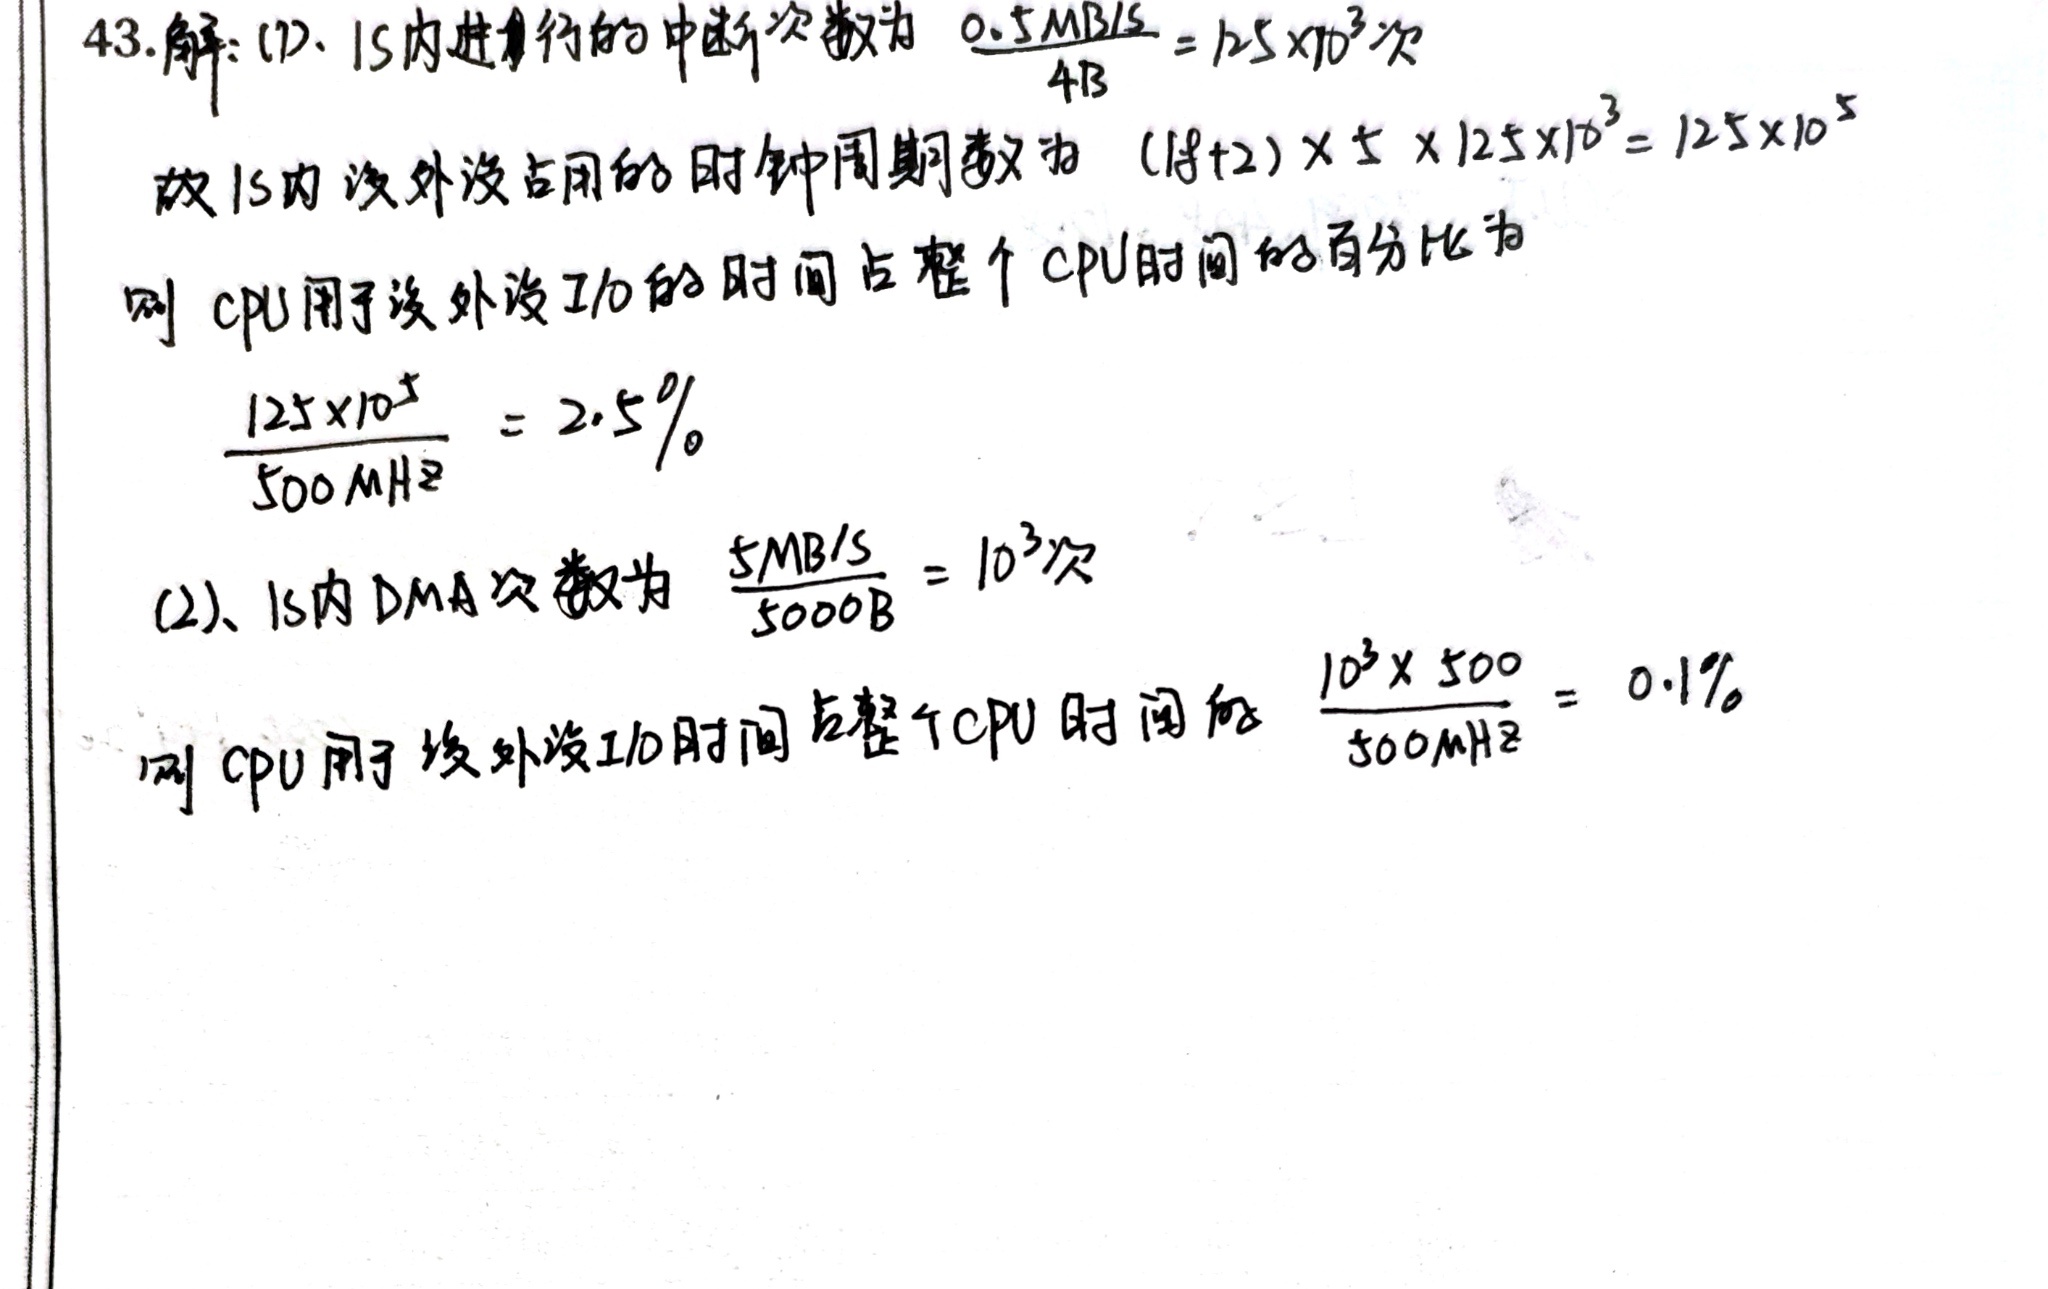 43.解:(1)、1S内进行的中断次数为 0.5MB/S / 4B = 125×10³次
故1S内该外设占用的时钟周期数为 (18+2)×5×125×10³=125×10⁵
则CPU用于该外设I/O的时间占整个CPU时间的百分比为
125×10⁵ / 500MHz = 2.5%
(2)、1S内DMA次数为 5MB/S / 5000B = 10³次
则CPU用于该外设I/O时间占整个CPU时间的 10³×500 / 500MHz = 0.1%